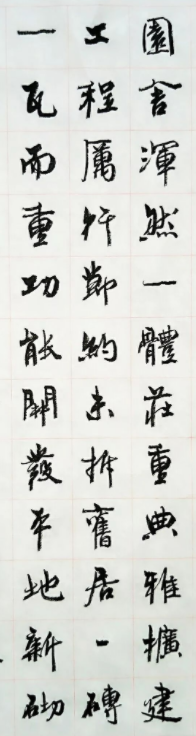 園舍渾然一體莊重典雅擴建
工程厲行節約未拆舊居一磚
一瓦而重功能開發平地新砌